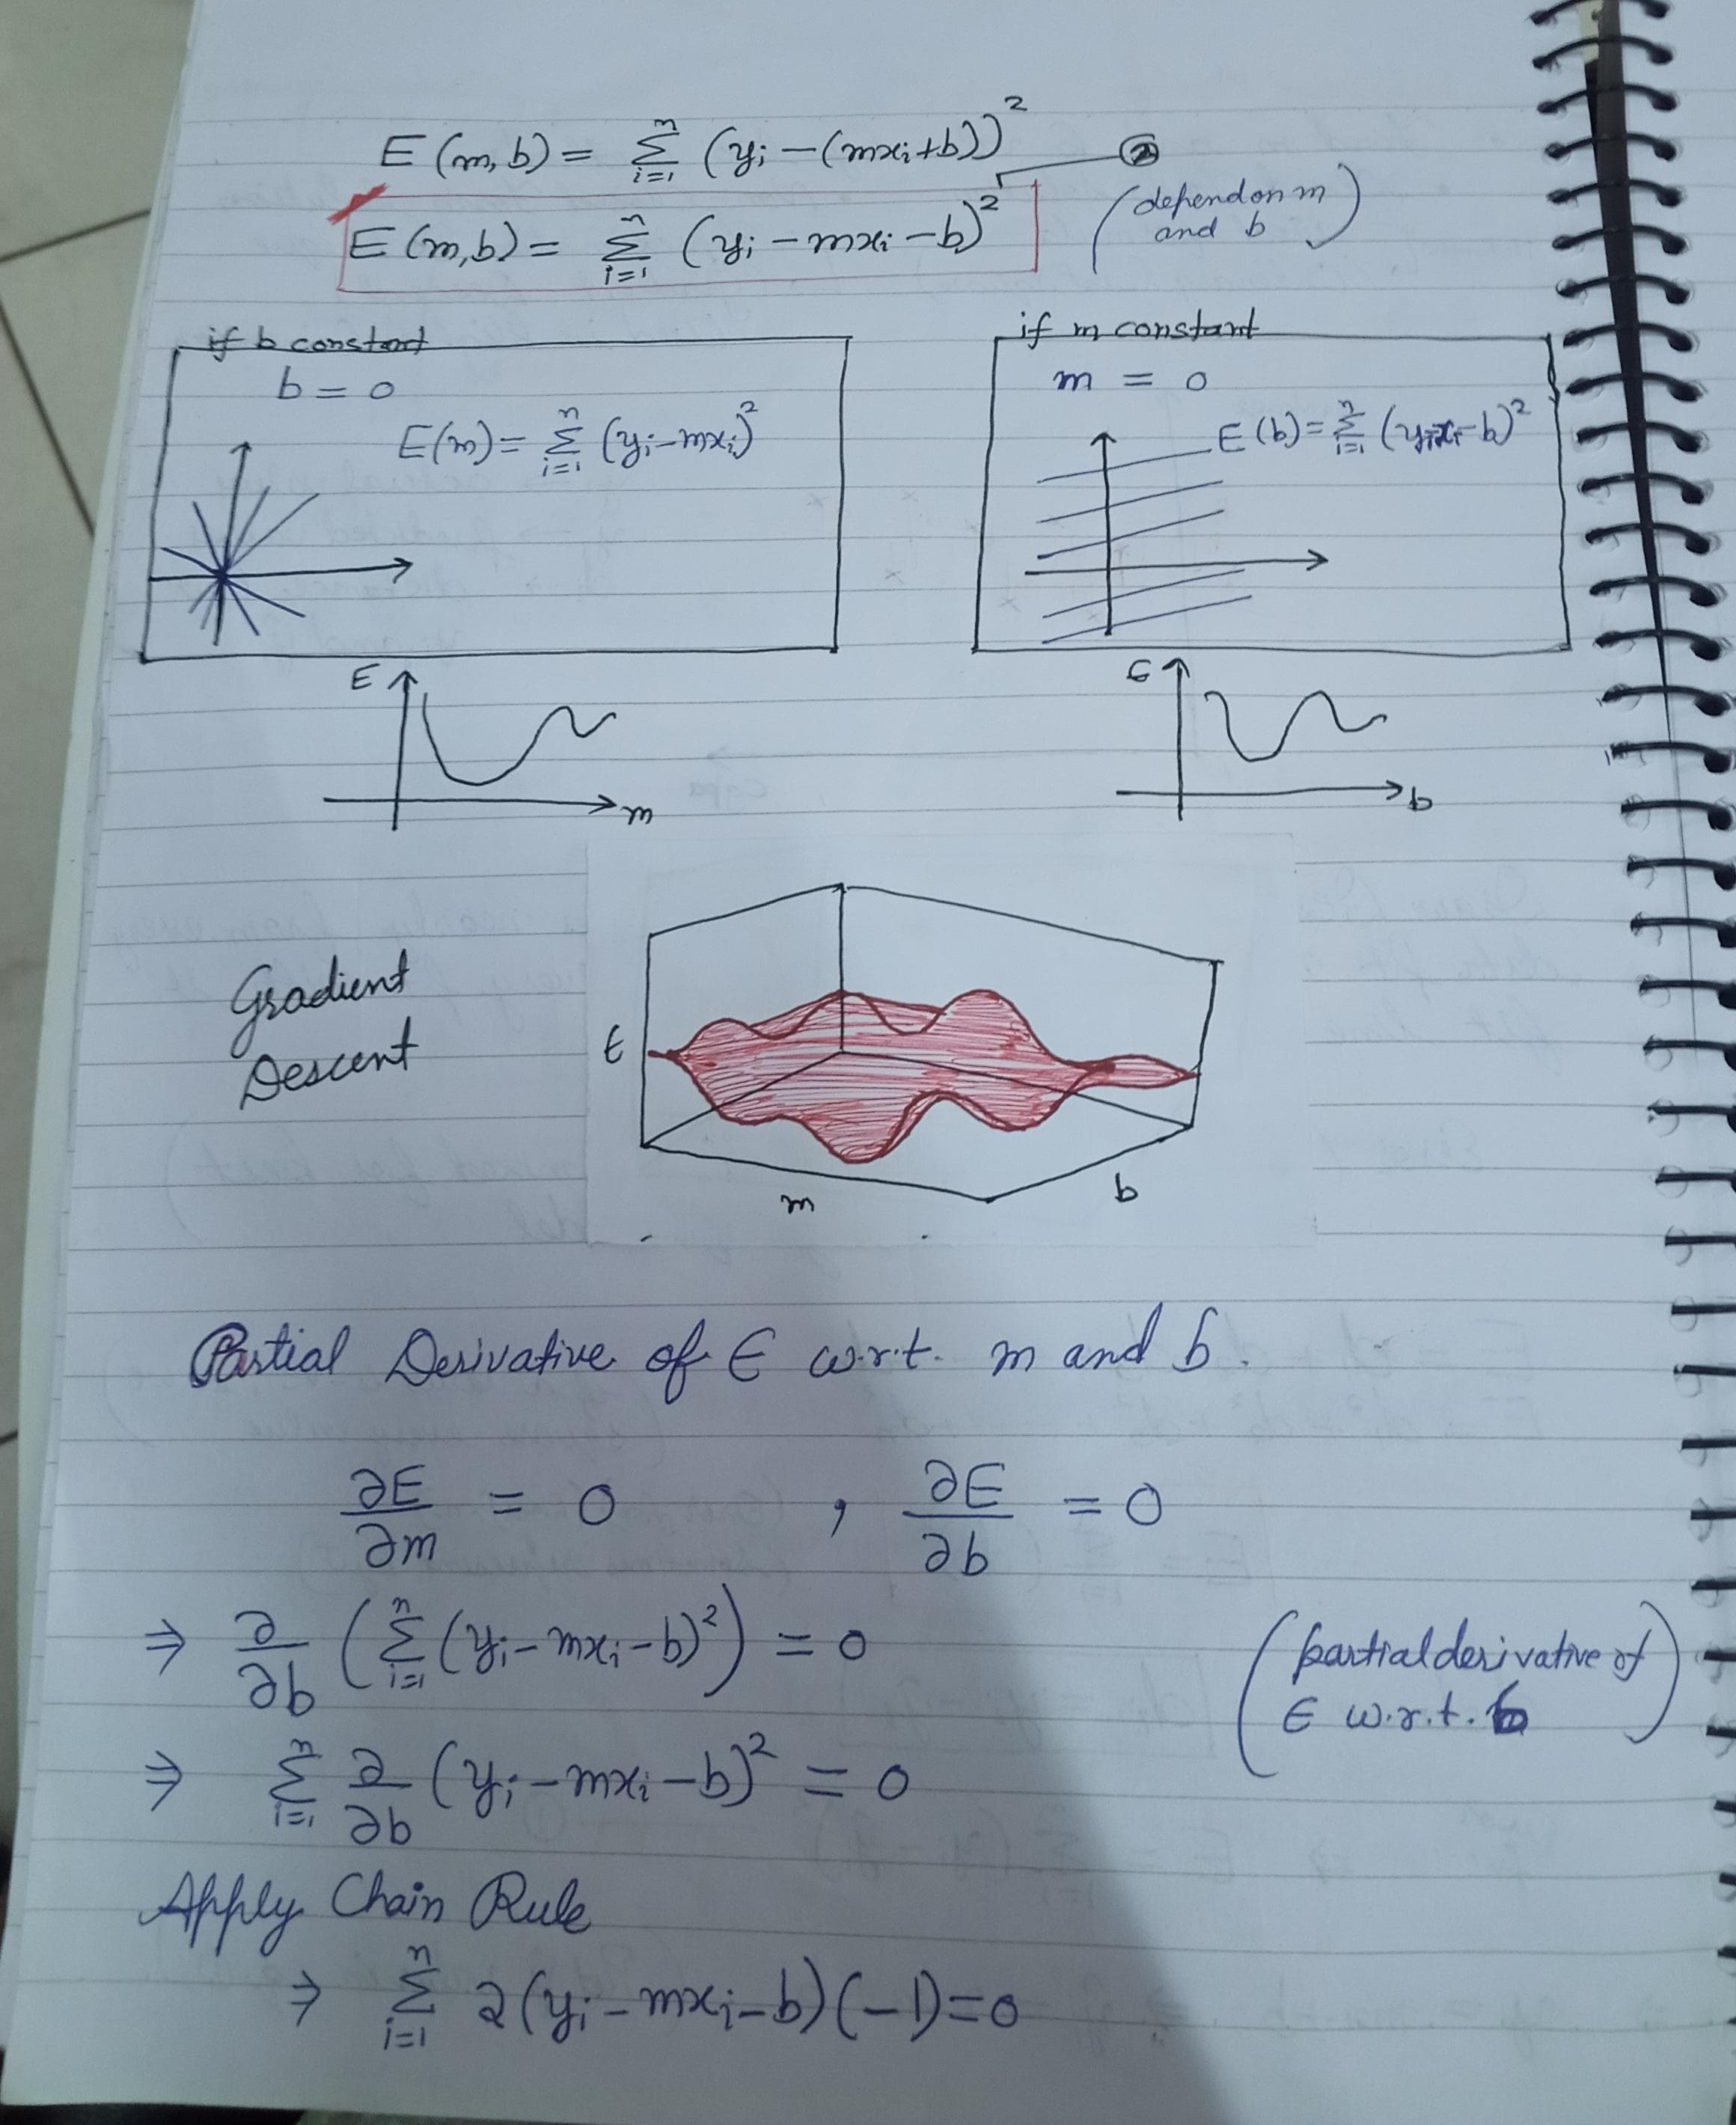 E (m, b) = Σ_{i=1}^{n} (yᵢ − (mxᵢ+b))²
②
E (m,b) = Σ_{i=1}^{n} (yᵢ − mxᵢ − b)²
(depend on m
and b)
if b constant
b = 0
E(m) = Σ_{i=1}^{n} (yᵢ − mxᵢ)²
if m constant
m = 0
E (b) = Σ_{i=1}^{n} (yᵢ xᵢ − b)²
E
m
E
b
Gradient
Descent
E
m
b
Partial Derivative of E w.r.t. m and b.
∂E/∂m = 0 , ∂E/∂b = 0
⇒ ∂/∂b (Σ_{i=1}^{n} (yᵢ − mxᵢ − b)²) = 0
(partial derivative of
E w.r.t. b)
⇒ Σ_{i=1}^{n} ∂/∂b (yᵢ − mxᵢ − b)² = 0
Apply Chain Rule
⇒ Σ_{i=1}^{n} 2(yᵢ − mxᵢ − b)(−1) = 0